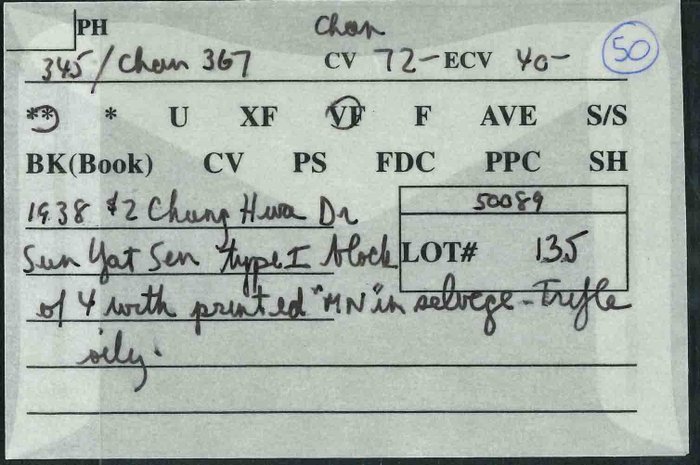 PH Chan 50
345/Chan 367 CV 72- ECV 40-
** * U XF VF F AVE S/S
BK(Book) CV PS FDC PPC SH
1938 $2 Chung Hwa Dr 50089
Sun Yat Sen type I block LOT# 135
of 4 with printed "MN" in selvege - Trifle
oily.